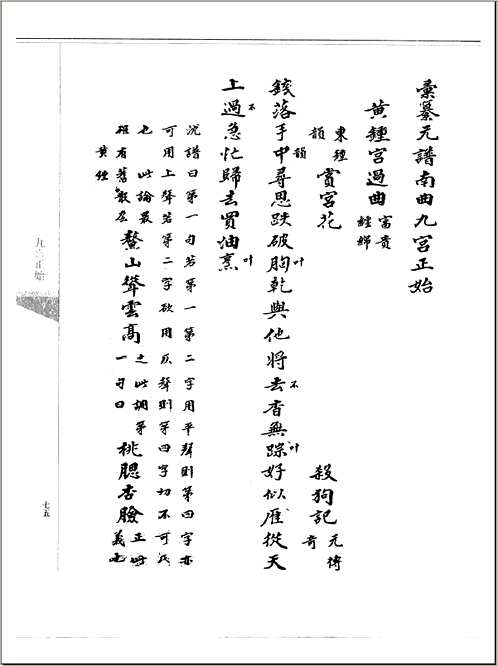 彙纂元譜南曲九宮正始
黄鍾宮過曲 富貴
纏綿
東鍾
韻
賞宮花 殺狗記 元傳
奇
錢落手中韻尋思跌破胸叶乾與他將去不杳無踪叶好似雁從天
上過不急忙歸去買油烹叶
沈譜曰第一句若第一第二字用平聲則第四字亦
可用上聲若第二字欲用仄聲則第四字切不可仄
也 此論最 鰲山聳雲高 之此調第 桃腮杏臉 正此
有舊散套 一句曰 義也
黄鍾
九宮正始
七五